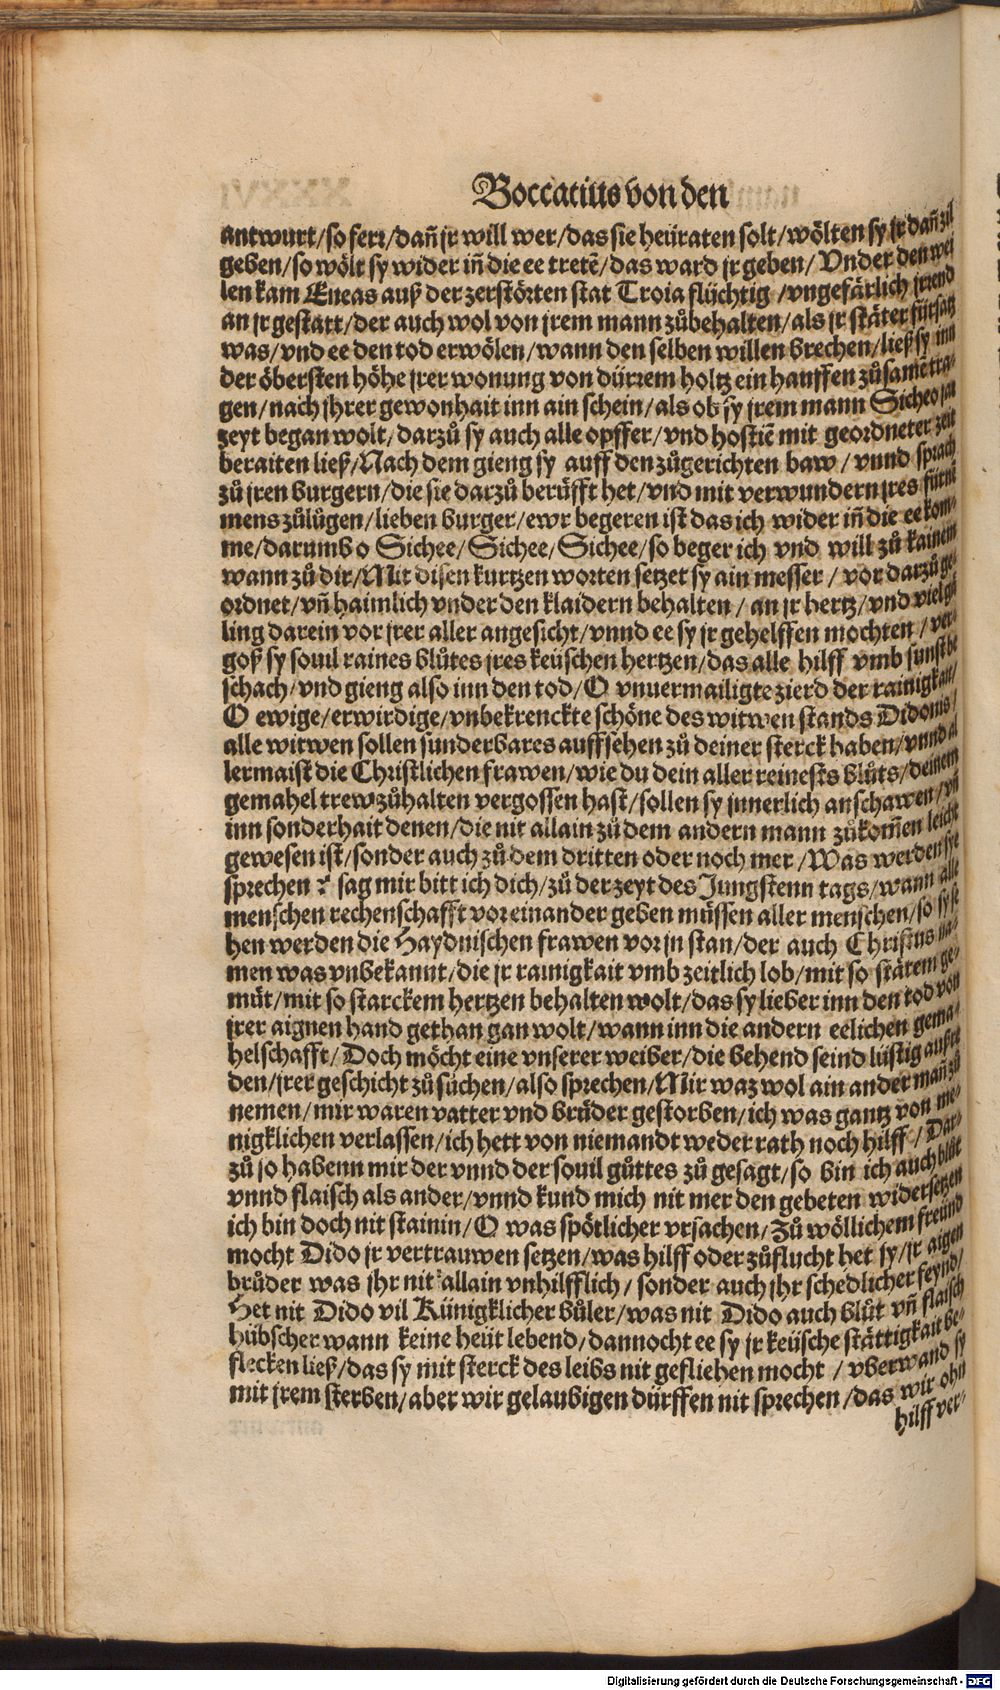 Boccatius von den
antwurt/so ferr/dañ jr will wer/das sie heüraten solt/wölten sy jr dañ zil
geben/so wölt sy wider iñ die ee tretẽ/das ward jr geben/Vnder den wei
len kam Eneas auß der zerstörten stat Troia flüchtig/vngefärlich jrnend
an jr gestatt/der auch wol von jrem mann zůbehalten/als jr stäter fürsatz
was/vnd ee den tod erwölen/wann den selben willen brechen/ließ sy inn
der öbersten höhe jrer wonung von dürrem holtz ein hauffen zůsamẽ tra-
gen/nach jhrer gewonhait inn ain schein/als ob sy jrem mann Sicheo jar
zeyt began wolt/darzů sy auch alle opffer/vnd hostiẽ mit geordneter zeit
beraiten ließ/Nach dem gieng sy auff den zůgerichten baw/vnnd sprach
zů jren burgern/die sie darzů berüfft het/vnd mit verwundern jres fürne
mens zůlůgen/lieben burger/ewr begeren ist das ich wider iñ die ee kom-
me/darumb o Sichee/Sichee/Sichee/so beger ich vnd will zů kainem
wann zů dir/Mit disen kurtzen worten setzet sy ain messer/vor darzů ge-
ordnet/vñ haimlich vnder den klaidern behalten/an jr hertz/vnd viel gäh
ling darein vor jrer aller angesicht/vnnd ee sy jr gehelffen mochten/ver-
goß sy souil raines blůtes jres keüschen hertzen/das alle hilff vmb sunst be
schach/vnd gieng also inn den tod/O vnuermailigte zierd der rainigkait/
O ewige/erwirdige/vnbekrenckte schöne des witwen stands Didonis/
alle witwen sollen sunderbares auffsehen zů deiner sterck haben/vnnd al
lermaist die Christlichen frawen/wie du dein aller reinests blůts/deinem
gemahel trew zůhalten vergossen hast/sollen sy jnnerlich anschawen/vñ
inn sonderhait denen/die nit allain zů dem andern mann zůkom̃en leicht
gewesen ist/sonder auch zů dem dritten oder noch mer/Was werden sye
sprechen? sag mir bitt ich dich/zů der zeyt des Jungstenn tags/wann alle
menschen rechenschafft vor einander geben müssen aller menschen/so sy se
hen werden die Haydnischen frawen vor jn stan/der auch Christus na-
men was vnbekannt/die jr rainigkait vmb zeitlich lob/mit so stätem ge-
müt/mit so starckem hertzen behalten wolt/das sy lieber inn den tod von
jrer aignen hand gethan gan wolt/wann inn die andern eelichen gema-
helschafft/Doch möcht eine vnserer weiber/die behend seind lüstig außre
den/jrer geschicht zů süchen/also sprechen/Mir waz wol ain ander mañ zů
nemen/mir waren vatter vnd brüder gestorben/ich was gantz von me-
nigklichen verlassen/ich hett von niemandt weder rath noch hilff/Dar-
zů jo habenn mir der vnnd der souil gůttes zů gesagt/so bin ich auch blůt
vnnd flaisch als ander/vnnd kund mich nit mer den gebeten widersetzen
ich bin doch nit stainin/O was spötlicher vrsachen/Zů wöllichem freünd
mocht Dido jr vertrauwen setzen/was hilff oder zůflucht het sy/jr aigen
brůder was jhr nit allain vnhilfflich/sonder auch jhr schedlicher feynd/
Het nit Dido vil Künigklicher bůler/was nit Dido auch blůt vñ flaisch
hübscher wann keine heüt lebend/dannocht ee sy jr keüsche stättigkait be-
flecken ließ/das sy mit sterck des leibs nit gefliehen mocht/vberwand sy
mit jrem sterben/aber wir gelaubigen dürffen nit sprechen/das wir ohn
hilff ver-
Digitalisierung gefördert durch die Deutsche Forschungsgemeinschaft - DFG